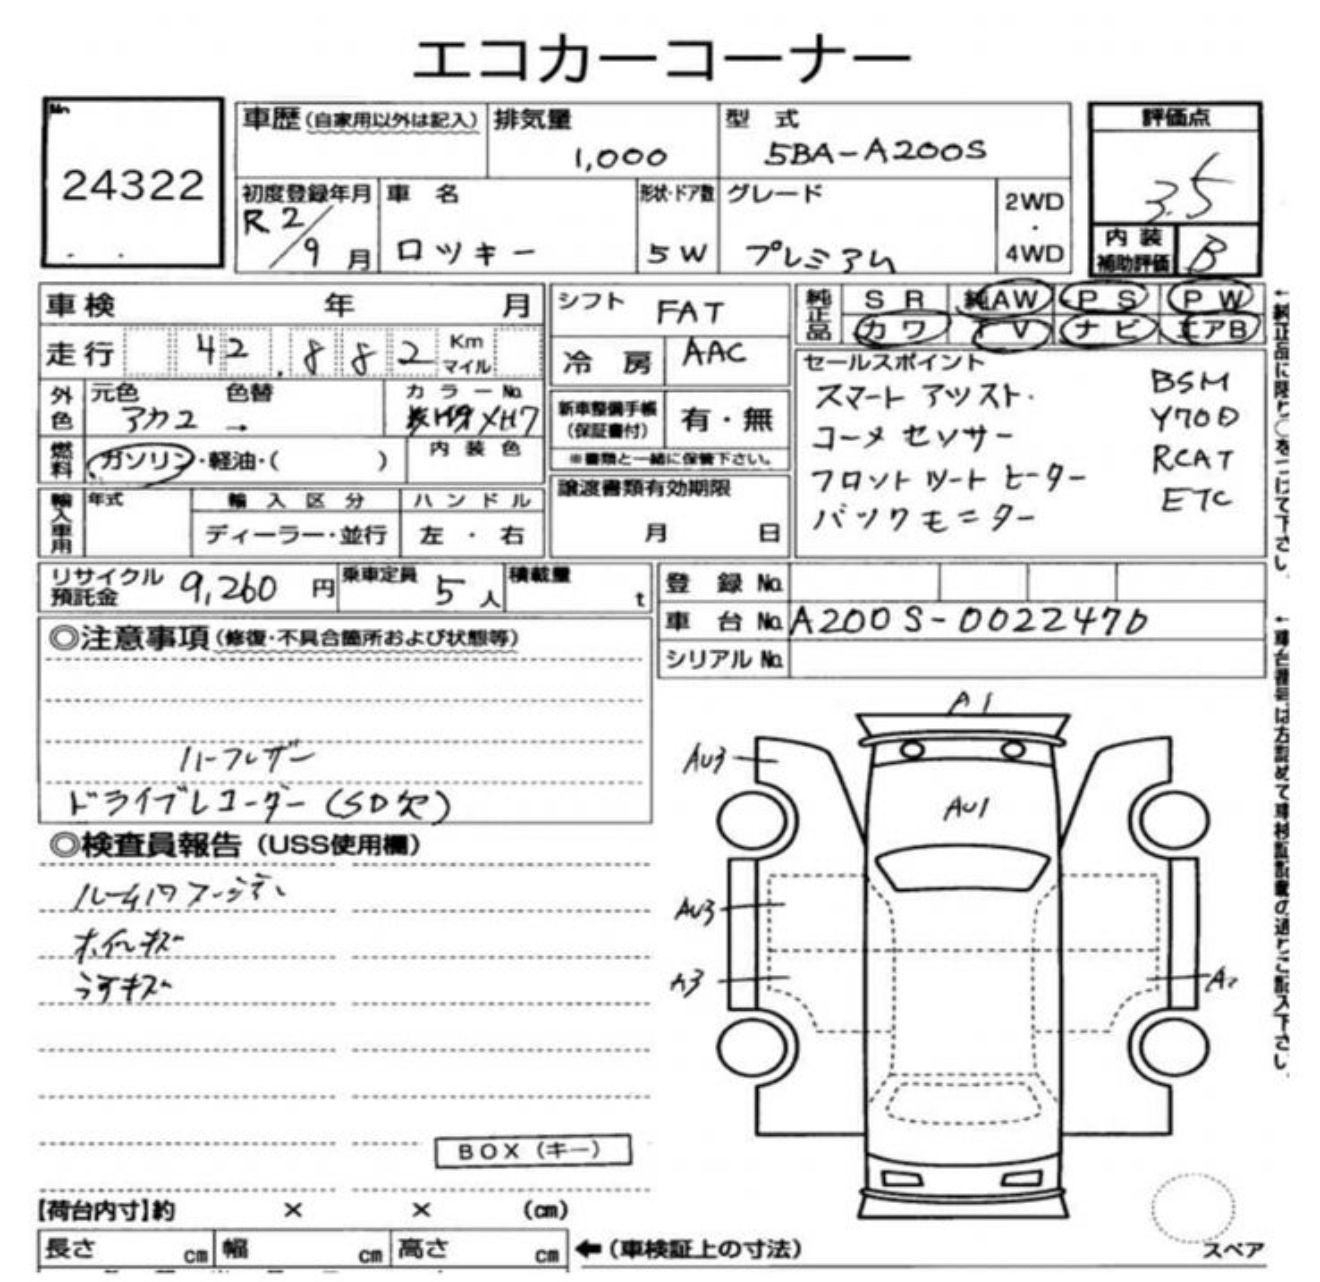 エコカーコーナー
No.
24322
車歴(自家用以外は記入) 排気量 型 式
1,000 5BA-A200S
初度登録年月 車 名 形状・ドア数 グレード 2WD・4WD
R2/9月 ロッキー 5W プレミアム
評価点
3.5
内装補助評価 B
車検 年 月
走行 42,882 Km マイル
外色 元色 色替 カラーNo.
アカ2 → XH7
燃料 ガソリン・軽油・( ) 内装色
輸入車用 年式 輸入区分 ハンドル
ディーラー・並行 左・右
シフト FAT
冷房 AAC
新車整備手帳(保証書付) 有・無
※書類と一緒に保管下さい。
譲渡書類有効期限
月 日
純正品 SR 純AW PS PW
カワ TV ナビ エアB
セールスポイント
スマートアシスト. BSM
コーナーセンサー
フロントシートヒーター RCAT
バックモニター ETC
←純正品に限り○をつけて下さい。
リサイクル預託金 9,260円 乗車定員 5人 積載量 t
登録No.
車台No. A200S-0022476
シリアルNo.
←車台番号は方認めて車検証記載の通りご記入下さい。
◎注意事項(修復・不具合箇所および状態等)
ハーフレザー
ドライブレコーダー(SD欠)
◎検査員報告(USS使用欄)
ホイルキズ
うすキズ
BOX(キー)
A1
AU3
AU1
AU3
A3
スペア
【荷台内寸】約 × × (cm)
長さ cm 幅 cm 高さ cm ←(車検証上の寸法)